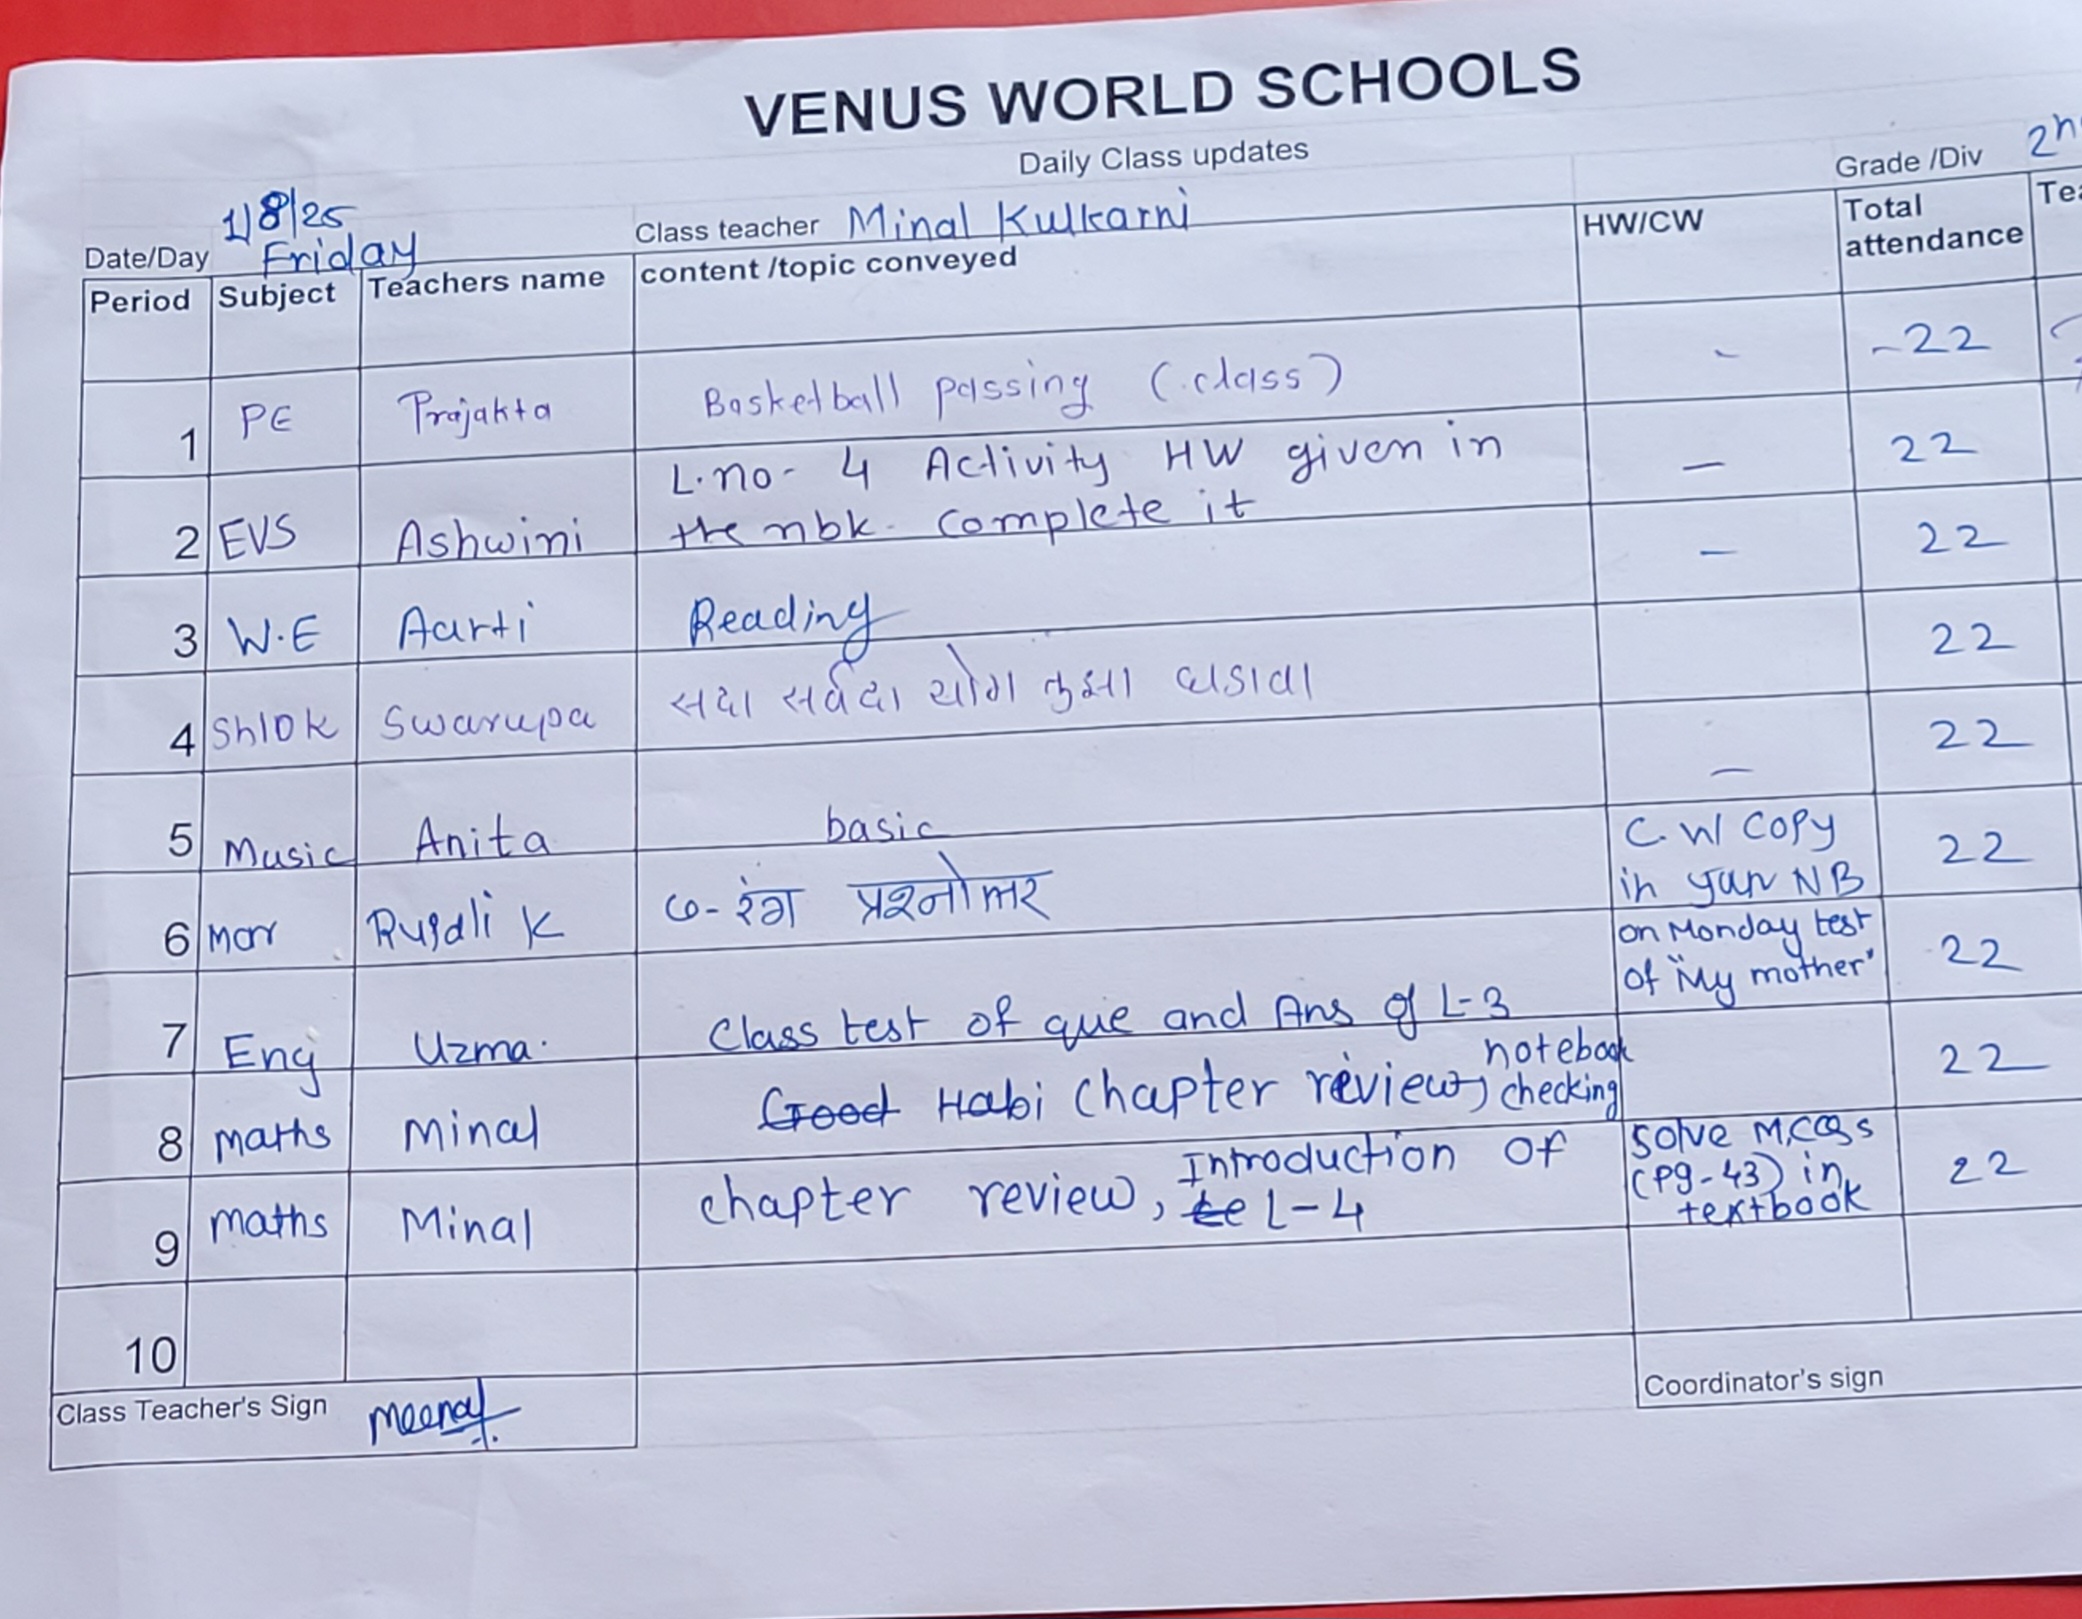 VENUS WORLD SCHOOLS
Daily Class updates
Grade /Div
Date/Day 1/8/25 Friday
Class teacher Minal Kulkarni
Period Subject Teachers name content /topic conveyed HW/CW Total attendance
1 PE Prajakta Basketball passing (class) - -22
2 EVS Ashwini L.no- 4 Activity HW given in — 22
the nbk. Complete it
3 W.E Aarti Reading — 22
4 Shlok Swarupa सदा सर्वदा योग तुझा घडावा 22
5 Music Anita basic — 22
6 Mar Rupali K ७- रंग प्रश्नोत्तर C.W Copy 22
in NB
7 Eng Uzma. Class test of que and Ans of L-3 on Monday test 22
of "My mother"
8 maths Minal Good Habi Chapter review, notebook 22
checking
9 maths Minal chapter review, Introduction of Solve M,CQs 22
te L-4 (Pg-43) in
textbook
10
Class Teacher's Sign Meenal
Coordinator's sign